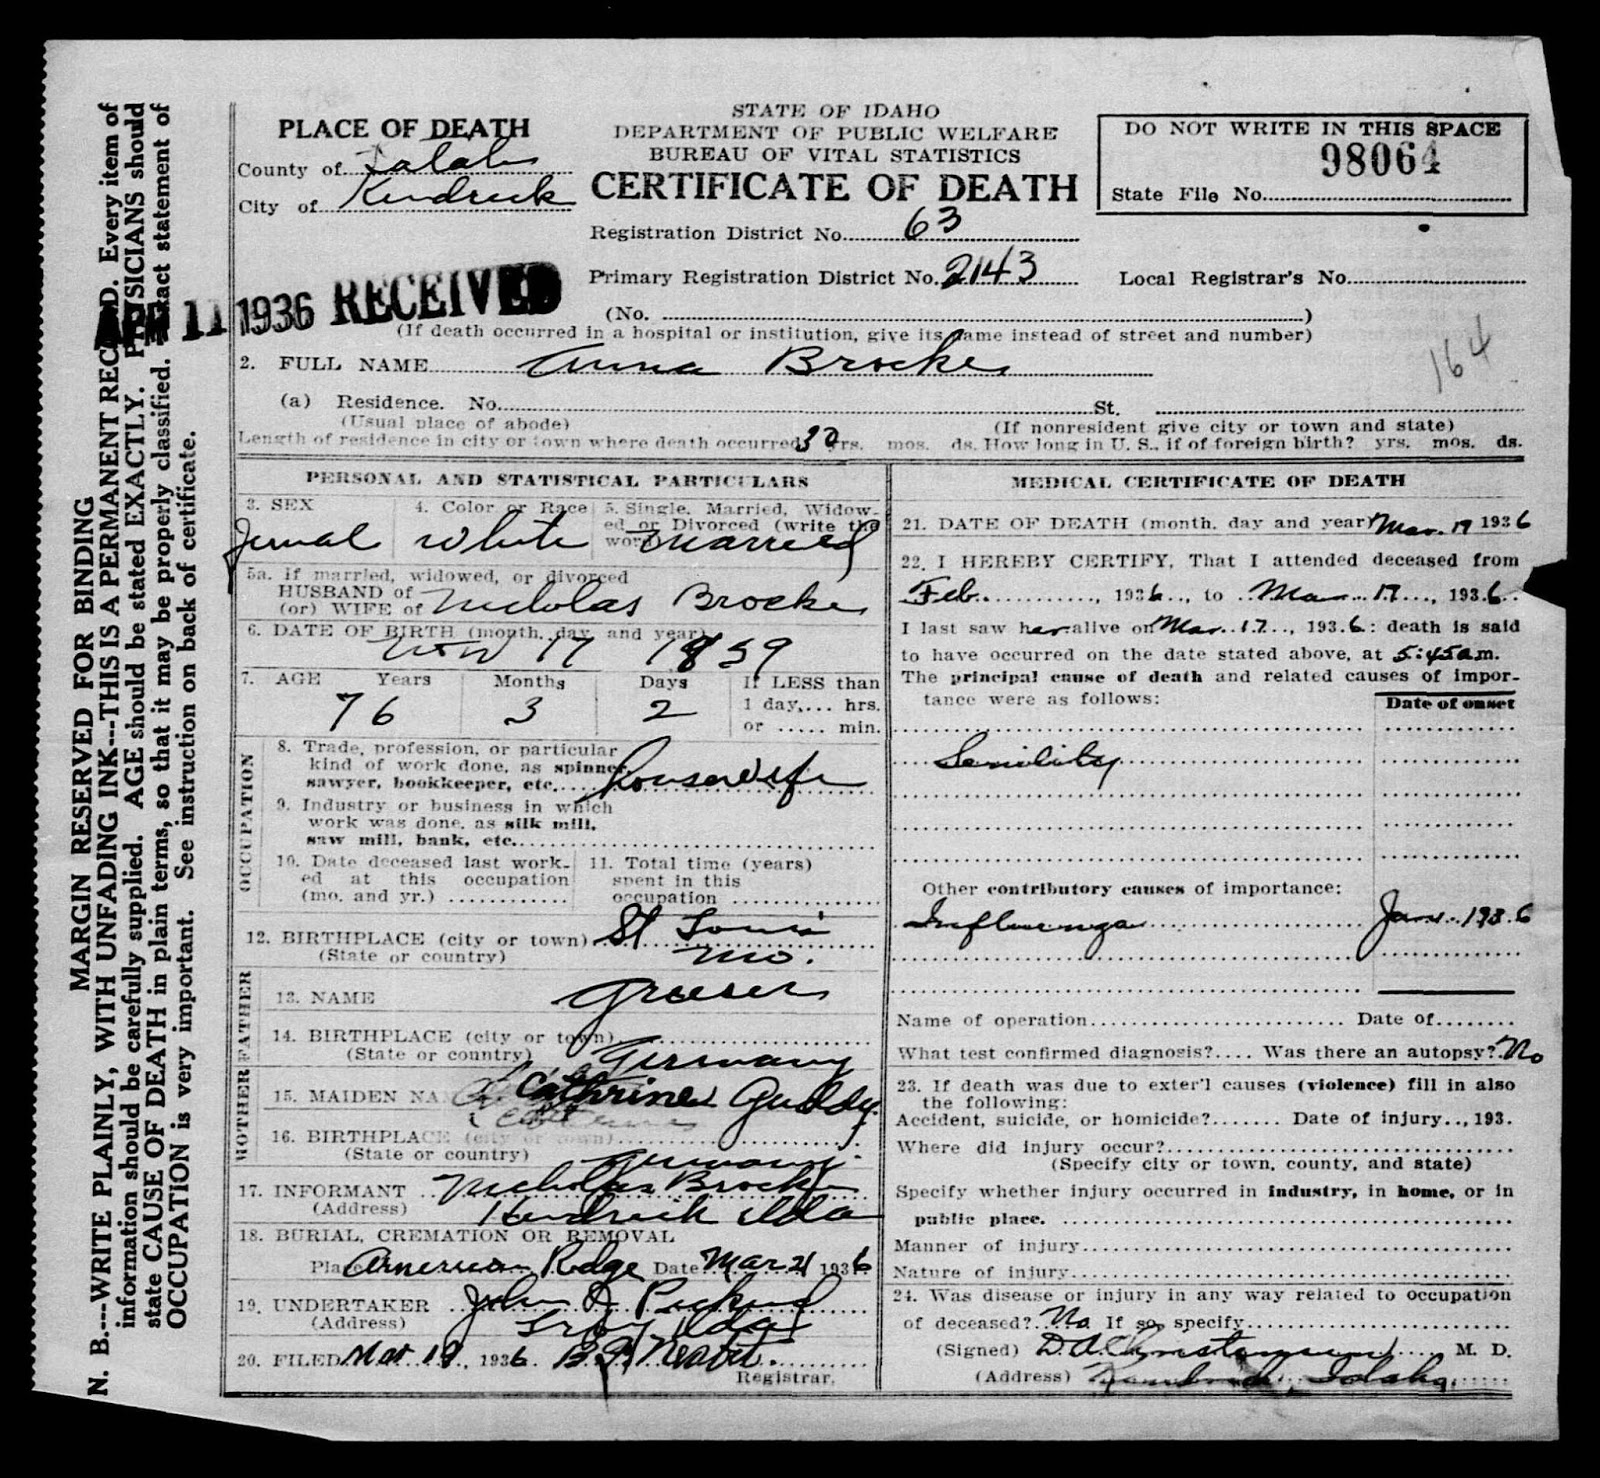 MARGIN RESERVED FOR BINDING
N. B.---WRITE PLAINLY, WITH UNFADING INK---THIS IS A PERMANENT RECORD. Every item of
information should be carefully supplied. AGE should be stated EXACTLY. PHYSICIANS should
state CAUSE OF DEATH in plain terms, so that it may be properly classified. Exact statement of
OCCUPATION is very important. See instruction on back of certificate.
PLACE OF DEATH
County of Latah
City of Kendrick
STATE OF IDAHO
DEPARTMENT OF PUBLIC WELFARE
BUREAU OF VITAL STATISTICS
CERTIFICATE OF DEATH
DO NOT WRITE IN THIS SPACE
98064
State File No.
Registration District No. 63
Primary Registration District No. 2143
Local Registrar's No.
APR 11 1936 RECEIVED
(No. )
(If death occurred in a hospital or institution, give its name instead of street and number)
164
2. FULL NAME Anna Brocke
(a) Residence. No. St.
(Usual place of abode) (If nonresident give city or town and state)
Length of residence in city or town where death occurred 30 yrs. mos. ds. How long in U. S., if of foreign birth? yrs. mos. ds.
PERSONAL AND STATISTICAL PARTICULARS
3. SEX
Femal
4. Color or Race
White
5. Single, Married, Widow-
ed or Divorced (write the
word) Married
5a. If married, widowed, or divorced
HUSBAND of
(or) WIFE of Nicholas Brocke
6. DATE OF BIRTH (month, day and year)
Nov 17 1859
7. AGE Years Months Days If LESS than
1 day,.... hrs.
or ..... min.
76 3 2
OCCUPATION
8. Trade, profession, or particular
kind of work done, as spinner,
sawyer, bookkeeper, etc. housewife
9. Industry or business in which
work was done, as silk mill,
saw mill, bank, etc.
10. Date deceased last work-
ed at this occupation
(mo. and yr.)
11. Total time (years)
spent in this
occupation
12. BIRTHPLACE (city or town) St Louis
(State or country) Mo.
FATHER
13. NAME Graeser
14. BIRTHPLACE (city or town)
(State or country) Germany
MOTHER
15. MAIDEN NAME Cathrine Guddy
16. BIRTHPLACE (city or town)
(State or country) Germany
17. INFORMANT Nicholas Brocke
(Address) Kendrick Ida
18. BURIAL, CREMATION OR REMOVAL
Place American Ridge Date Mar 21 1936
19. UNDERTAKER John
(Address) Troy Ida
20. FILED Mar 18, 1936
Registrar.
MEDICAL CERTIFICATE OF DEATH
21. DATE OF DEATH (month, day and year) Mar. 19 1936
22. I HEREBY CERTIFY, That I attended deceased from
Feb. , 1936, to Mar 19, 1936.
I last saw her alive on Mar 17, 1936: death is said
to have occurred on the date stated above, at 5:45 a m.
The principal cause of death and related causes of impor-
tance were as follows:
Date of onset
Senility
Other contributory causes of importance:
Influenza Jan. 1936
Name of operation Date of
What test confirmed diagnosis?.... Was there an autopsy? No
23. If death was due to exter'l causes (violence) fill in also
the following:
Accident, suicide, or homicide? Date of injury.., 193.
Where did injury occur?
(Specify city or town, county, and state)
Specify whether injury occurred in industry, in home, or in
public place.
Manner of injury
Nature of injury
24. Was disease or injury in any way related to occupation
of deceased? No If so, specify
(Signed) D A Christensen M. D.
(Address) Kendrick, Idaho.